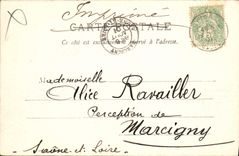 Imprimé
CARTE POSTALE
Ce côté est exclusivement réservé à l'adresse.
Mademoiselle
Alice Ravailler
Perception de
Marcigny
Saône-et-Loire